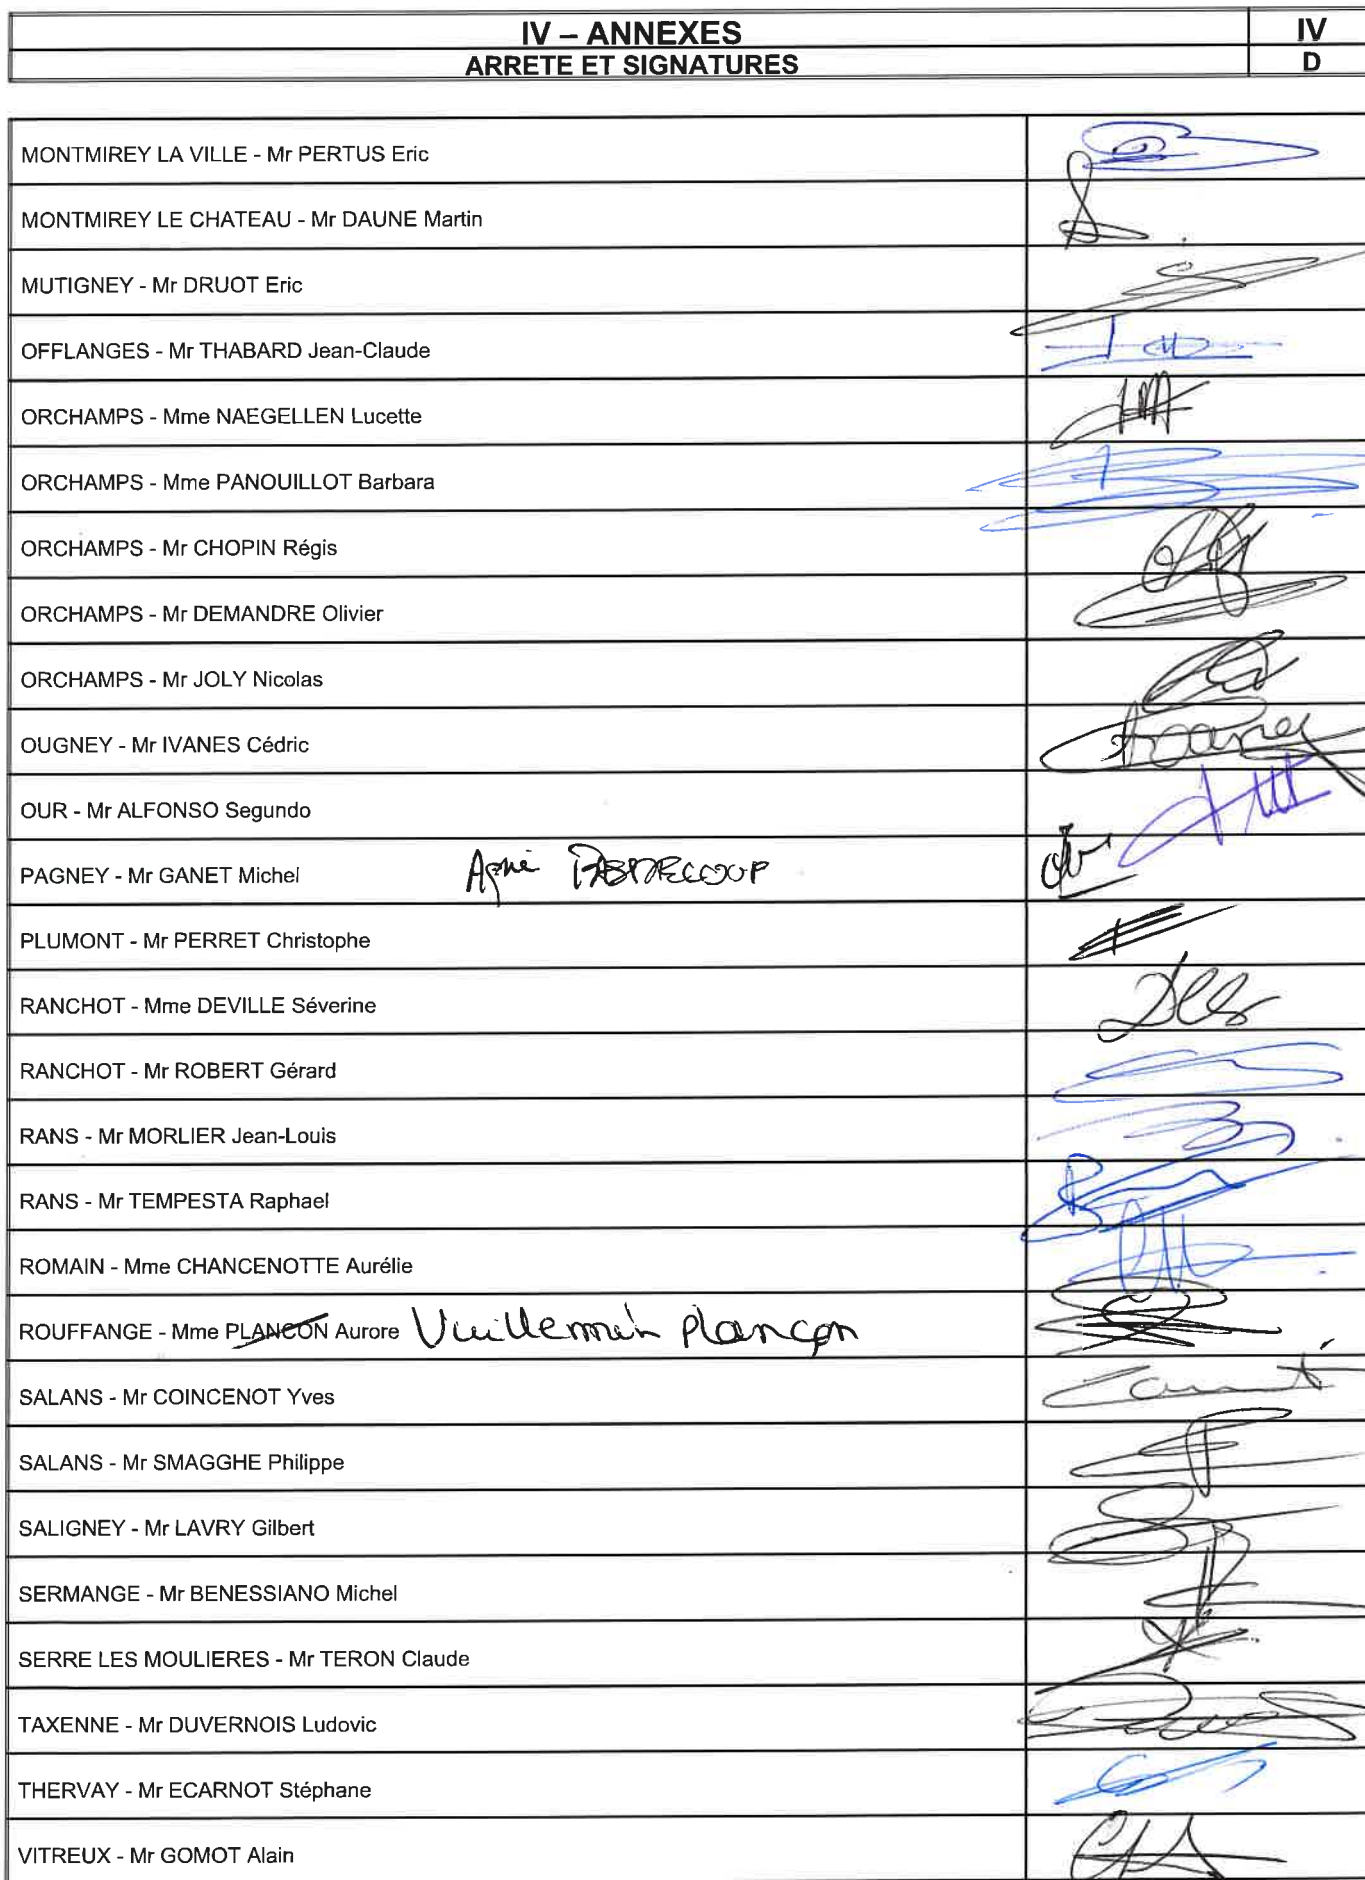 IV – ANNEXES IV
ARRETE ET SIGNATURES D
MONTMIREY LA VILLE - Mr PERTUS Eric
MONTMIREY LE CHATEAU - Mr DAUNE Martin
MUTIGNEY - Mr DRUOT Eric
OFFLANGES - Mr THABARD Jean-Claude
ORCHAMPS - Mme NAEGELLEN Lucette
ORCHAMPS - Mme PANOUILLOT Barbara
ORCHAMPS - Mr CHOPIN Régis
ORCHAMPS - Mr DEMANDRE Olivier
ORCHAMPS - Mr JOLY Nicolas
OUGNEY - Mr IVANES Cédric
OUR - Mr ALFONSO Segundo
PAGNEY - Mr GANET Michel
PLUMONT - Mr PERRET Christophe
RANCHOT - Mme DEVILLE Séverine
RANCHOT - Mr ROBERT Gérard
RANS - Mr MORLIER Jean-Louis
RANS - Mr TEMPESTA Raphael
ROMAIN - Mme CHANCENOTTE Aurélie
ROUFFANGE - Mme PLANCON Aurore Vuillemin plançon
SALANS - Mr COINCENOT Yves
SALANS - Mr SMAGGHE Philippe
SALIGNEY - Mr LAVRY Gilbert
SERMANGE - Mr BENESSIANO Michel
SERRE LES MOULIERES - Mr TERON Claude
TAXENNE - Mr DUVERNOIS Ludovic
THERVAY - Mr ECARNOT Stéphane
VITREUX - Mr GOMOT Alain